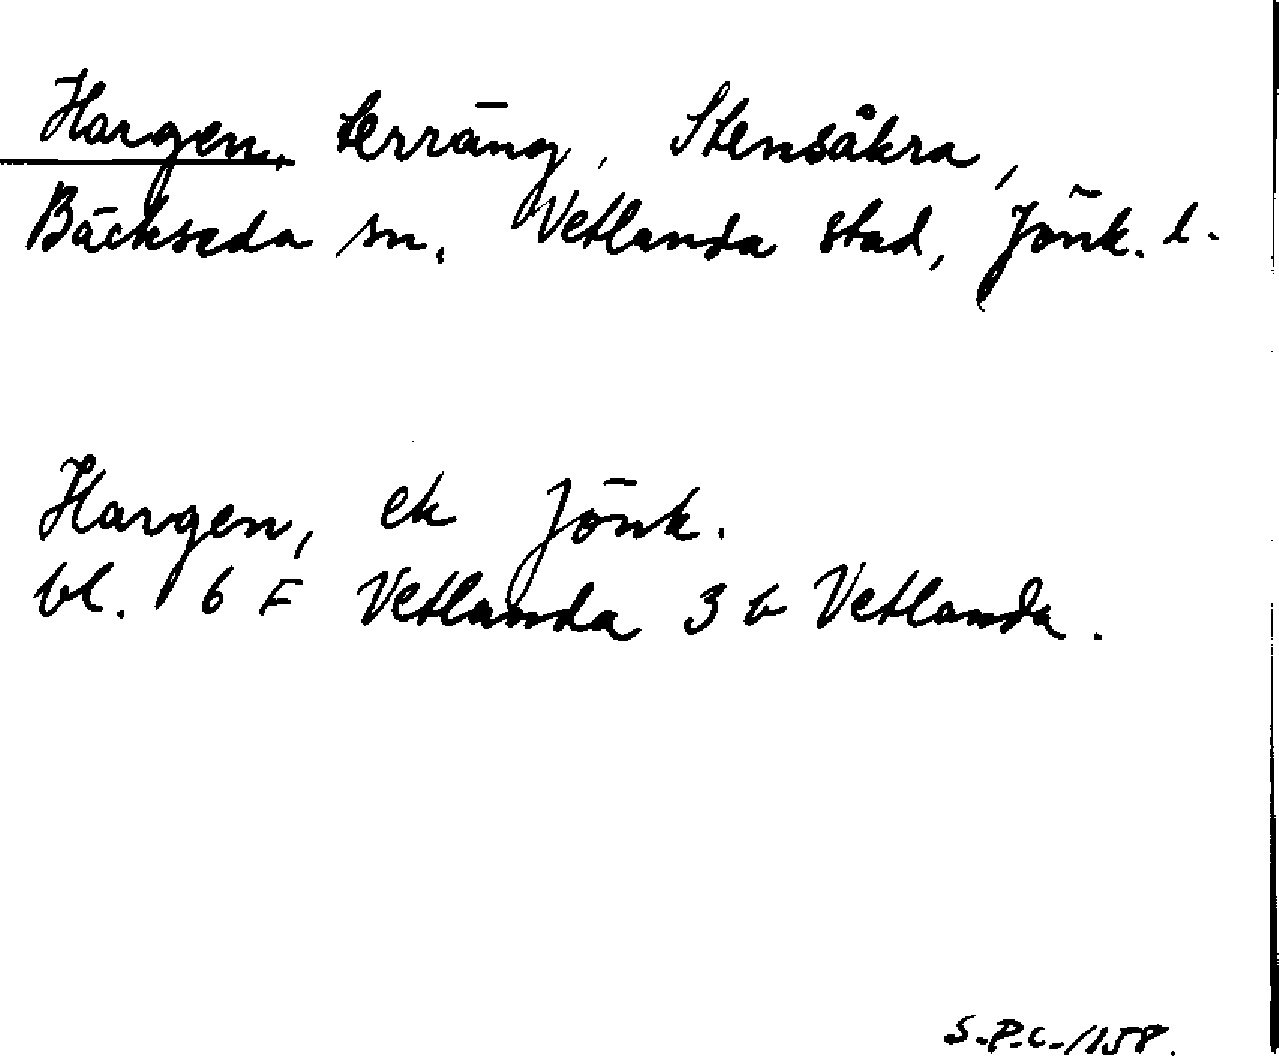 Hargen, terräng, Stensåkra,
Bäckseda sn. Vetlanda stad, Jönk. l.
Hargen, ek Jönk.
bl. 6 F Vetlanda 3 b Vetlanda.
S.P.C.-/158.